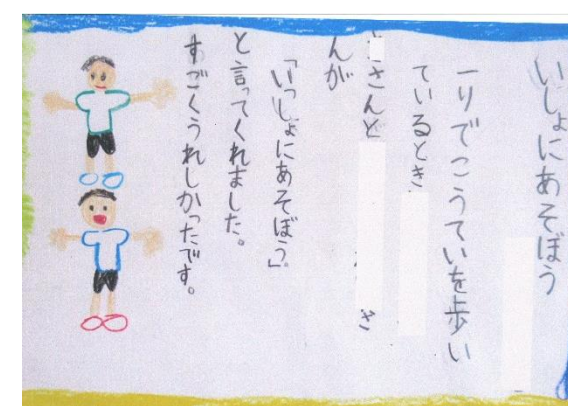 いしょにあそぼう
一りでこうていを歩い
ているとき
さんと さ
んが
「いっしょにあそぼう」。
と言ってくれました。
すごくうれしかったです。